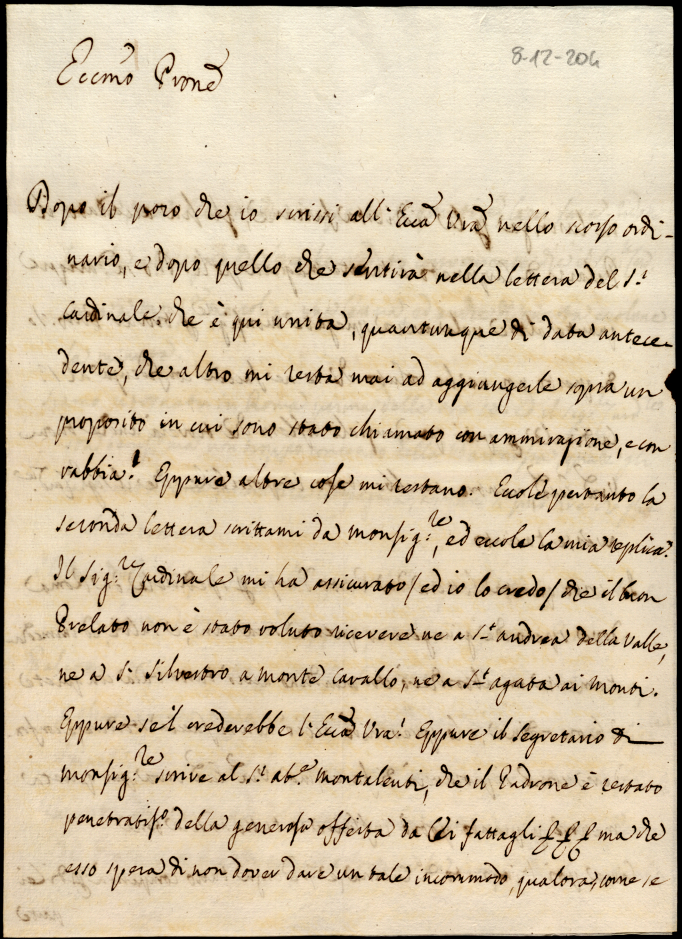 8-12-204
Eccmo Prone
Dopo il poco che io scrissi all' Ecca Vra nello scorso ordi-
nario, e dopo quello che sentirà nella lettera del S.r
Cardinale, che è qui unita, quantunque di data antece-
dente, che altro mi resta mai ad aggiungerle sopra un
proposito in cui sono stato chiamato con ammirazione, e con
rabbia! Eppure altre cose mi restano. Eccole pertanto la
seconda lettera scrittami da Monsig.re, ed eccole la mia replica.
Il Sig.re Cardinale mi ha assicurato / ed io lo credo / che il buon
Prelato non è stato voluto ricevere ne a S.t Andrea della Valle,
ne a S. Silvestro a Monte Cavallo, ne a S.t Agata ai Monti.
Eppure se 'l crederebbe l' Ecca Vra! Eppure il Segretario di
Monsig.re scrive al S.r Ab.e Montalenti, che il Padrone è restato
penetratiss.o della generosa offerta da Lei fattagli &c &c &c ma che
esso spera di non dover dare un tale incommodo, qualora, come se